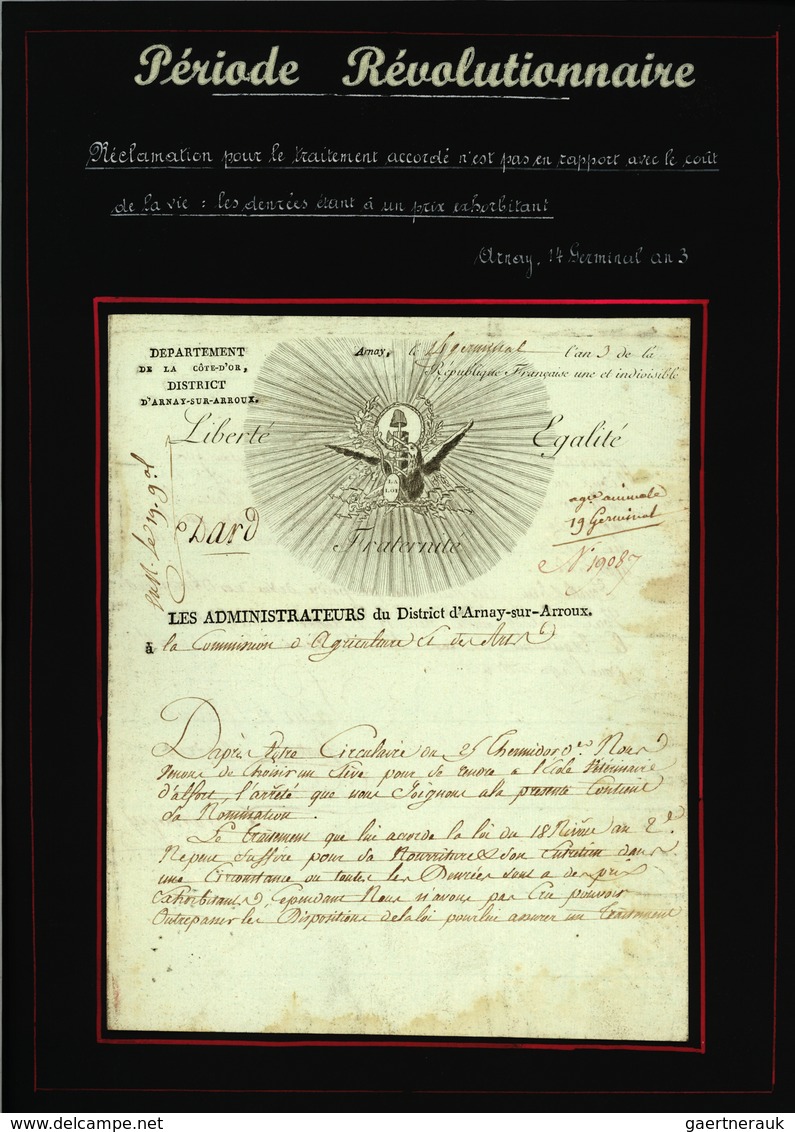 Période Révolutionnaire
Réclamation pour le traitement accordé n'est pas en rapport avec le coût
de la vie : les denrées étant à un prix exhorbitant
Arnay, 14 Germinal an 3
DEPARTEMENT
DE LA CÔTE-D'OR,
DISTRICT
D'ARNAY-SUR-ARROUX.
Arnay, le 14 germinal l'an 3 de la
République Française une et indivisible
Liberté
Egalité
LA
LOI
Dard
Fraternité
19 Germinal
N° 19087
LES ADMINISTRATEURS du District d'Arnay-sur-Arroux.
à la Commission d'Agriculture et des Arts
D'après votre Circulaire du 25 thermidor der. Nous
venons de choisir un Eleve pour se rendre a l'Ecole vétérinaire
d'alfort, l'arrêté que nous Joignons a la presente Contient
sa Nomination.
Le traitement que lui accorde la loi du 18 Nivôse an 2e.
Ne peut suffire pour sa Nourriture & son Entretien dans
une Circonstance ou toutes les Denrées sont a des prix
Exhorbitants, Cependant Nous n'avons pas Cru pouvoir
Outrepasser les Dispositions de la loi pour lui assurer un traitement
delcampe.net
gaertnerauk